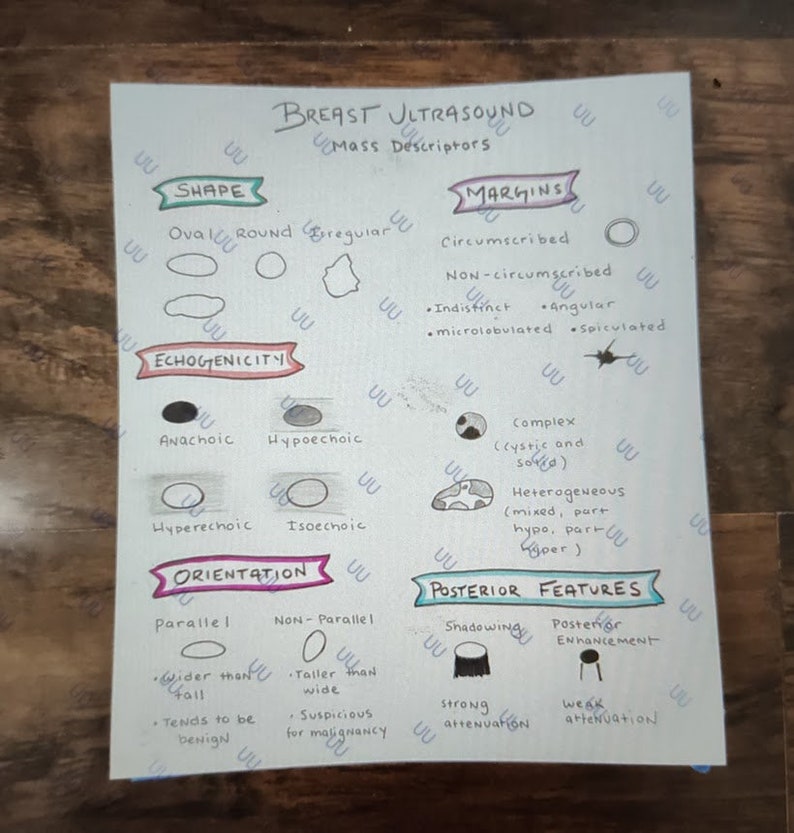 BREAST ULTRASOUND
Mass Descriptors
SHAPE
Oval ROUND Irregular
MARGINS
Circumscribed
NON-circumscribed
• Indistinct • Angular
• microlobulated • Spiculated
ECHOGENICITY
Anachoic Hypoechoic
Hyperechoic Isoechoic
Complex
(cystic and
solid)
Heterogeneous
(mixed, part
hypo, part
hyper)
ORIENTATION
Parallel NON-Parallel
• Wider than
tall
• Taller than
wide
• Tends to be
benign
• Suspicious
for malignancy
POSTERIOR FEATURES
Shadowing
Posterior
ENHANCEMENT
Strong
attenuation
weak
attenuation
UU